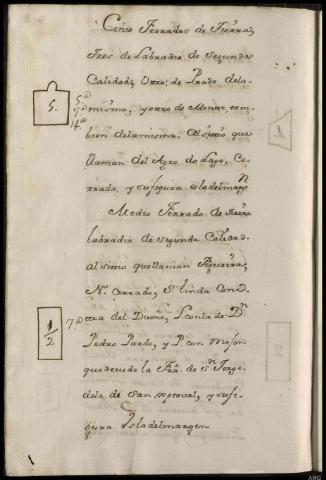 Cinco Ferrados de tierra,
tres de Labradio de segunda
Calidad; otro; de Prado dela
5. 5.ª 7.ª 14.ª
misma, y otro de Monte, tam-
bien dela misma, Alsitio que
llaman del Agro do Lago, Ce-
rrada, y sufigura esladelmargn
Medio Ferrado de tierra
labradia de segunda Calidad
al sitio quellaman Figueiras,
N. cerrado, L. linda Cond.
1/2 7.ª
otra del Dueño, P. conla de Dn
Pedro Pardo, y P con
quedeude la de Sn Jorge
dela de san y sufi-
gura Esladelmargen